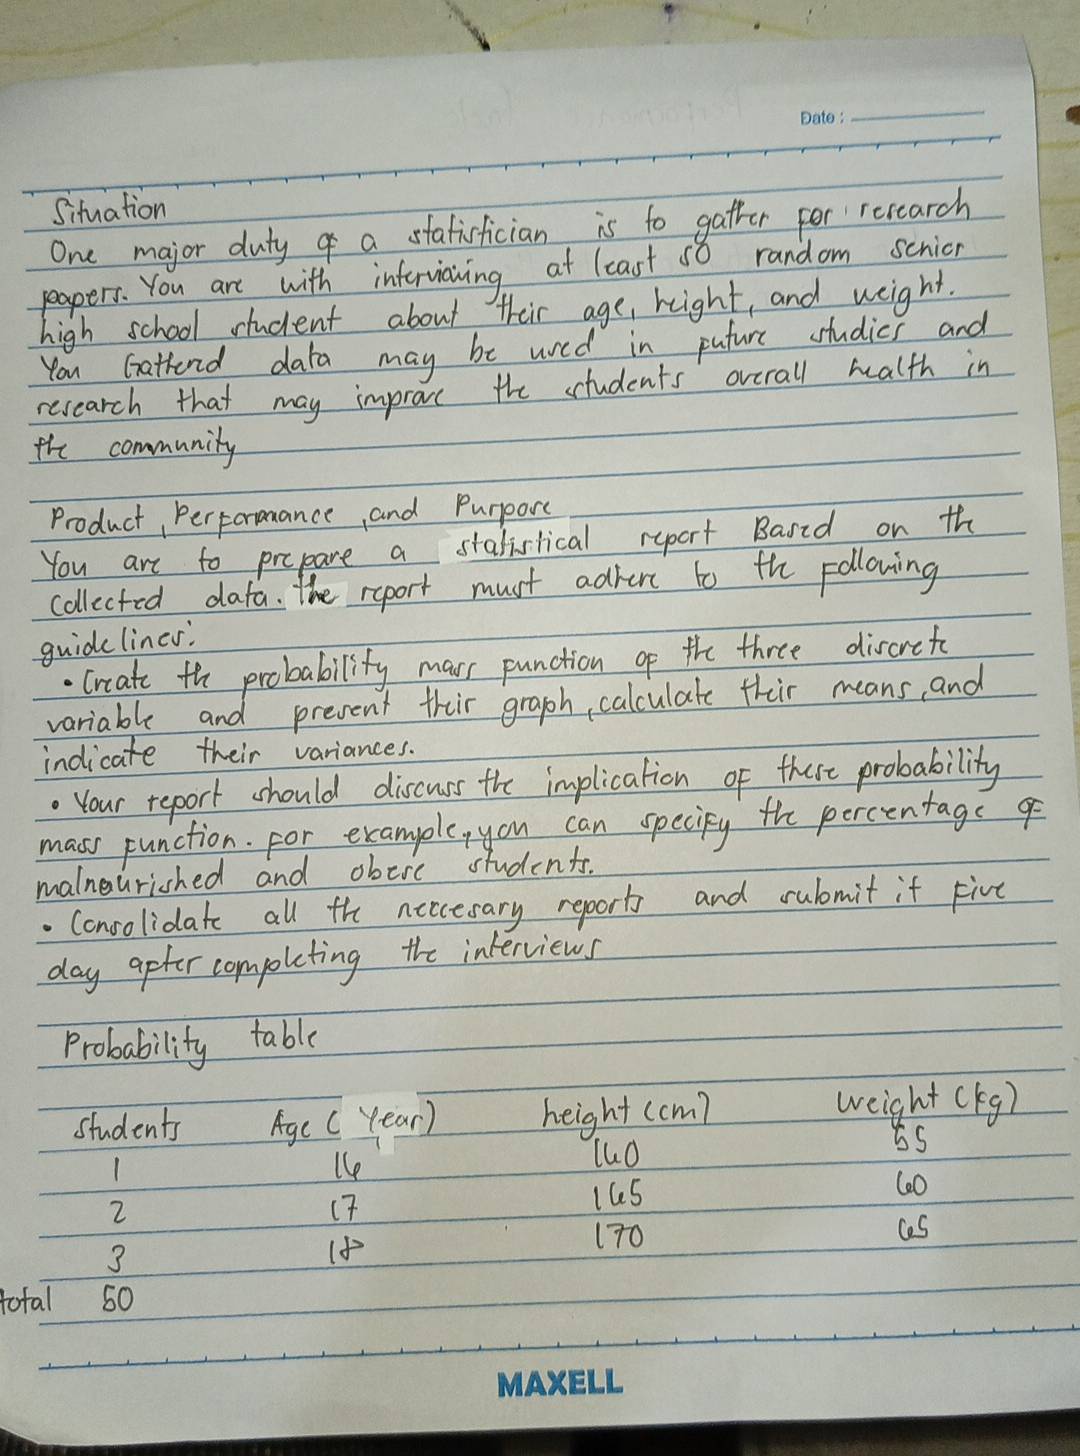 Date :
Situation
One major duty of a statistician is to gather for research
papers. You are with interviewing at least 50 random senior
high school student about their age, height, and weight.
You Gatherd data may be used in future studies and
research that may improve the students overall health in
the community
Product, Performance, and Purpose
You are to prepare a statistical report Based on the
collected data. The report must adhere to the following
guidelines:
• Create the probability mass function of the three discrete
variable and present their graph, calculate their means, and
indicate their variances.
• Your report should discuss the implication of these probability
mass function. For example, you can specify the percentage of
malnourished and obese students.
• Consolidate all the neccesary reports and submit it five
day after completing the interviews
Probability table
students Age ( Year) height (cm) weight (kg)
1 16 160 55
2 17 165 60
3 18 170 65
total 50
MAXELL